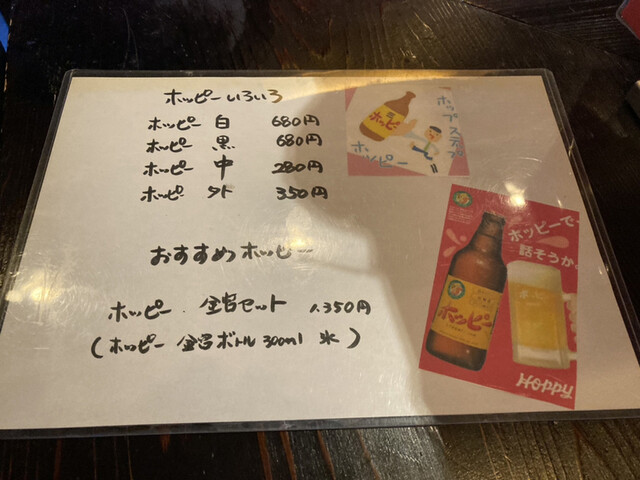 ホッピーいろいろ
ホッピー 白 680円
ホッピー 黒 680円
ホッピー 中 280円
ホッピー 外 350円
おすすめホッピー
ホッピー 金宮セット 1.350円
(ホッピー 金宮ボトル300ml 氷)
ホップステプ
ホッピー
ホッピー
ホッピーで
話そうか。
ホッピー
Hoppy